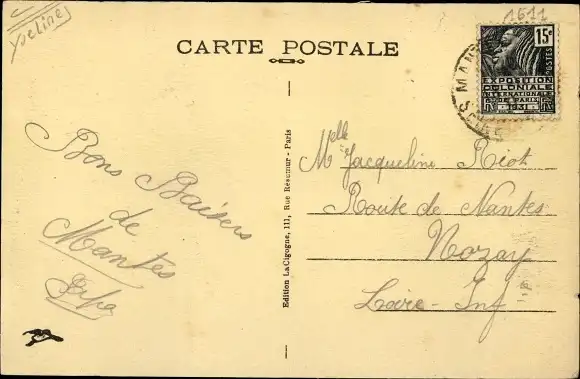 Yveline
1611
CARTE POSTALE
15c
POSTES
EXPOSITION
COLONIALE
INTERNATIONALE
DE PARIS
1931
MANTES
Bons Baisers
de
Mantes
Edition La Cigogne, 111, Rue Réaumur - Paris
Mlle Jacqueline Riot
Route de Nantes
Nozay
Loire-Inf